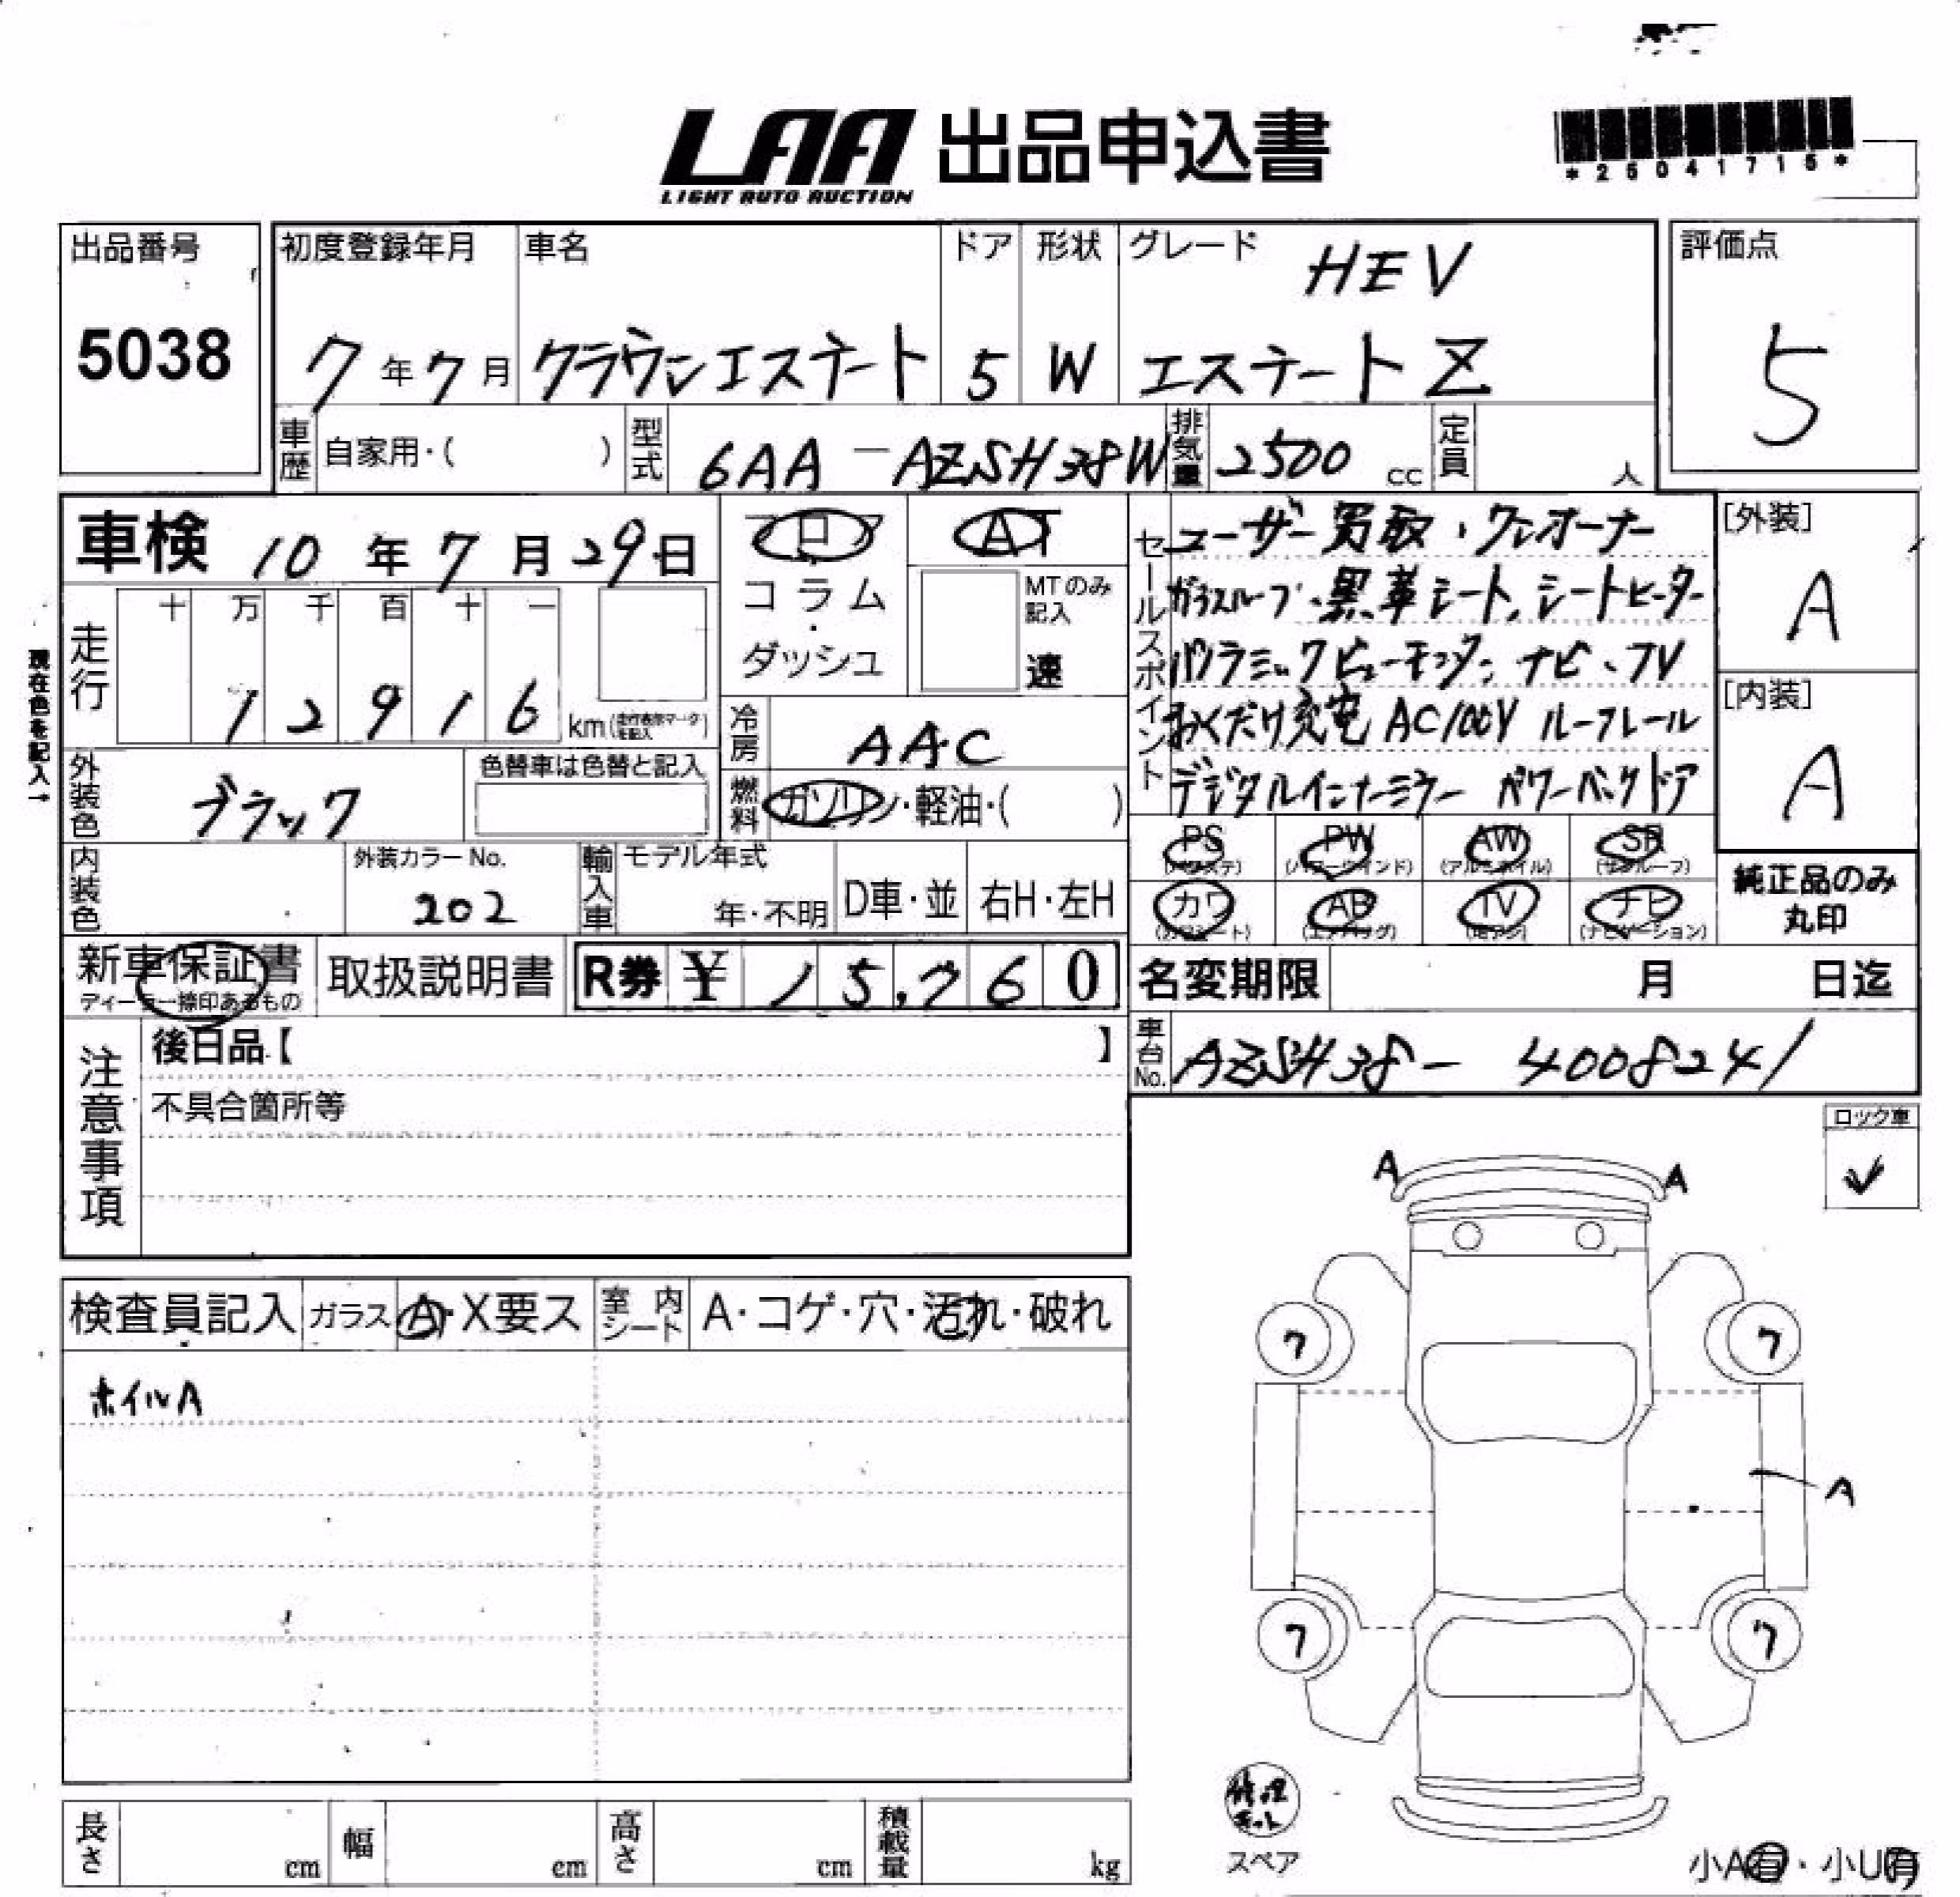 LAA 出品申込書
LIGHT AUTO AUCTION
*25041715*
出品番号
5038
初度登録年月
7年7月
車名
クラウンエステート
ドア
5
形状
W
グレード
HEV
エステートZ
評価点
5
車歴
自家用・( )
型式
6AA-AZSH38W
排気量
2500 cc
定員
人
車検 10年7月29日
フロア
コラム・
ダッシュ
AT
MTのみ
記入
速
走行
十 万 千 百 十 一
1 2 9 1 6 km
冷房
AAC
燃料
ガソリン・軽油・( )
現在色を記入→
外装色
ブラック
色替車は色替と記入
内装色
外装カラーNo.
202
輸入車
モデル年式
年・不明
D車・並
右H・左H
新車保証書
ディーラー捺印あるもの
取扱説明書
R券 ¥ 15,760
セールスポイント
ユーザー買取・ワンオーナー
ガラスルーフ、黒革シート、シートヒーター
パノラミックビューモニター、ナビ、TV
おくだけ充電 AC100V ルーフレール
デジタルインナーミラー パワーバックドア
PS
(パワステ)
PW
(パワーウインド)
AW
(アルミホイル)
SR
(サンルーフ)
カワ
(カワシート)
AB
(エアバッグ)
TV
ナビ
(ナビゲーション)
[外装]
A
[内装]
A
純正品のみ
丸印
名変期限 月 日迄
車台No.
AZSH38-4008241
注意事項
後日品【 】
不具合箇所等
ロック車
✓
検査員記入
ガラス
A・X要ス
室内シート
A・コゲ・穴・汚れ・破れ
ホイルA
A A
7 7
A
7 7
修理
キット
スペア
小A有・小U有
長さ cm
幅 cm
高さ cm
積載量 kg